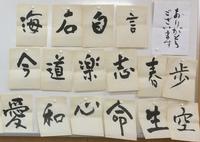 海石自言
ありがとう
ございます
今道楽志春歩
愛和心命生空